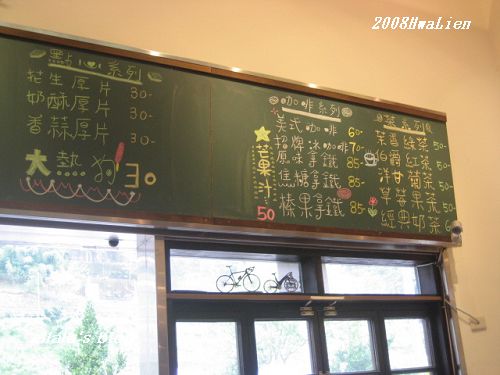 2008HwaLien
點心系列
花生厚片 30-
奶酥厚片 30-
香蒜厚片 30-
大熱狗 30
芒果汁 50
咖啡系列
美式咖啡 60-
招牌冰咖啡 70-
原味拿鐵 85-
焦糖拿鐵 85-
榛果拿鐵 85-
茶系列
茉香綠茶 50-
伯爵紅茶 50-
洋甘菊茶 50-
草莓果茶 50-
經典奶茶